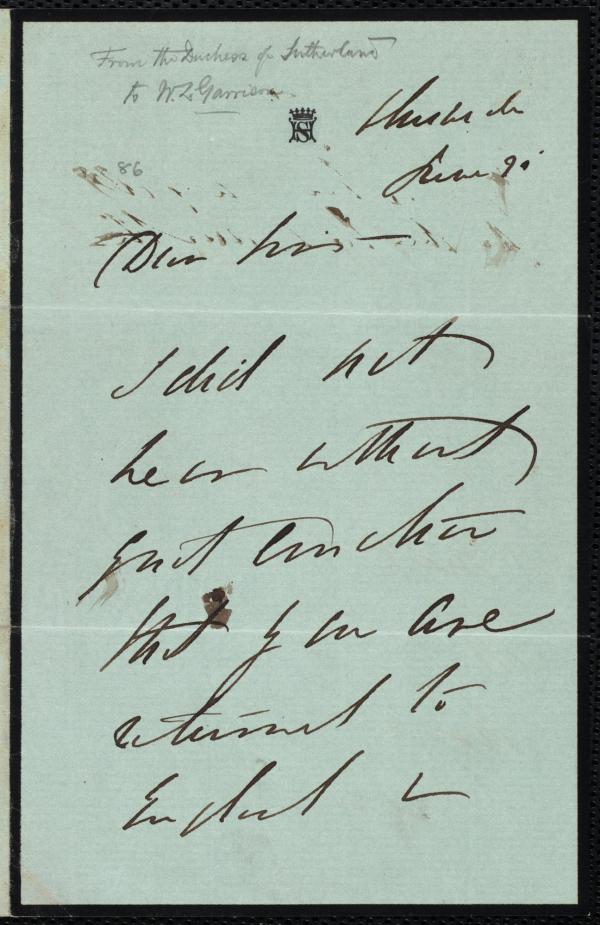 From the Duchess of Sutherland
to W. L. Garrison
86
June 21
Dear Sir —
I did not
hear without
great emotion
that you are
returned to
England &